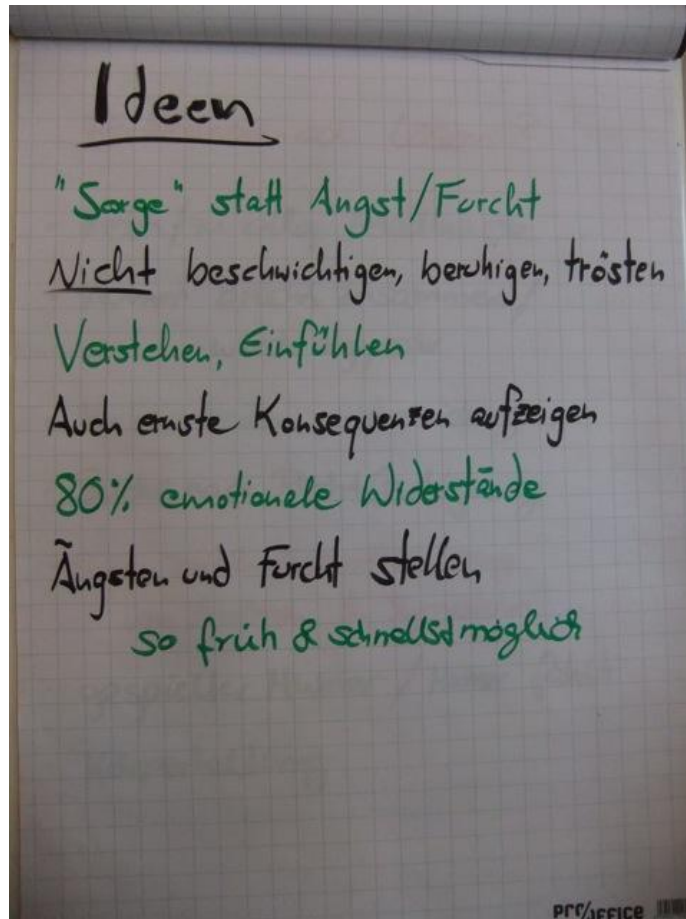 Ideen
"Sorge" statt Angst/Furcht
Nicht beschwichtigen, beruhigen, trösten
Verstehen, Einfühlen
Auch ernste Konsequenzen aufzeigen
80% emotionale Widerstände
Ängsten und Furcht stellen
so früh & schnellstmöglich